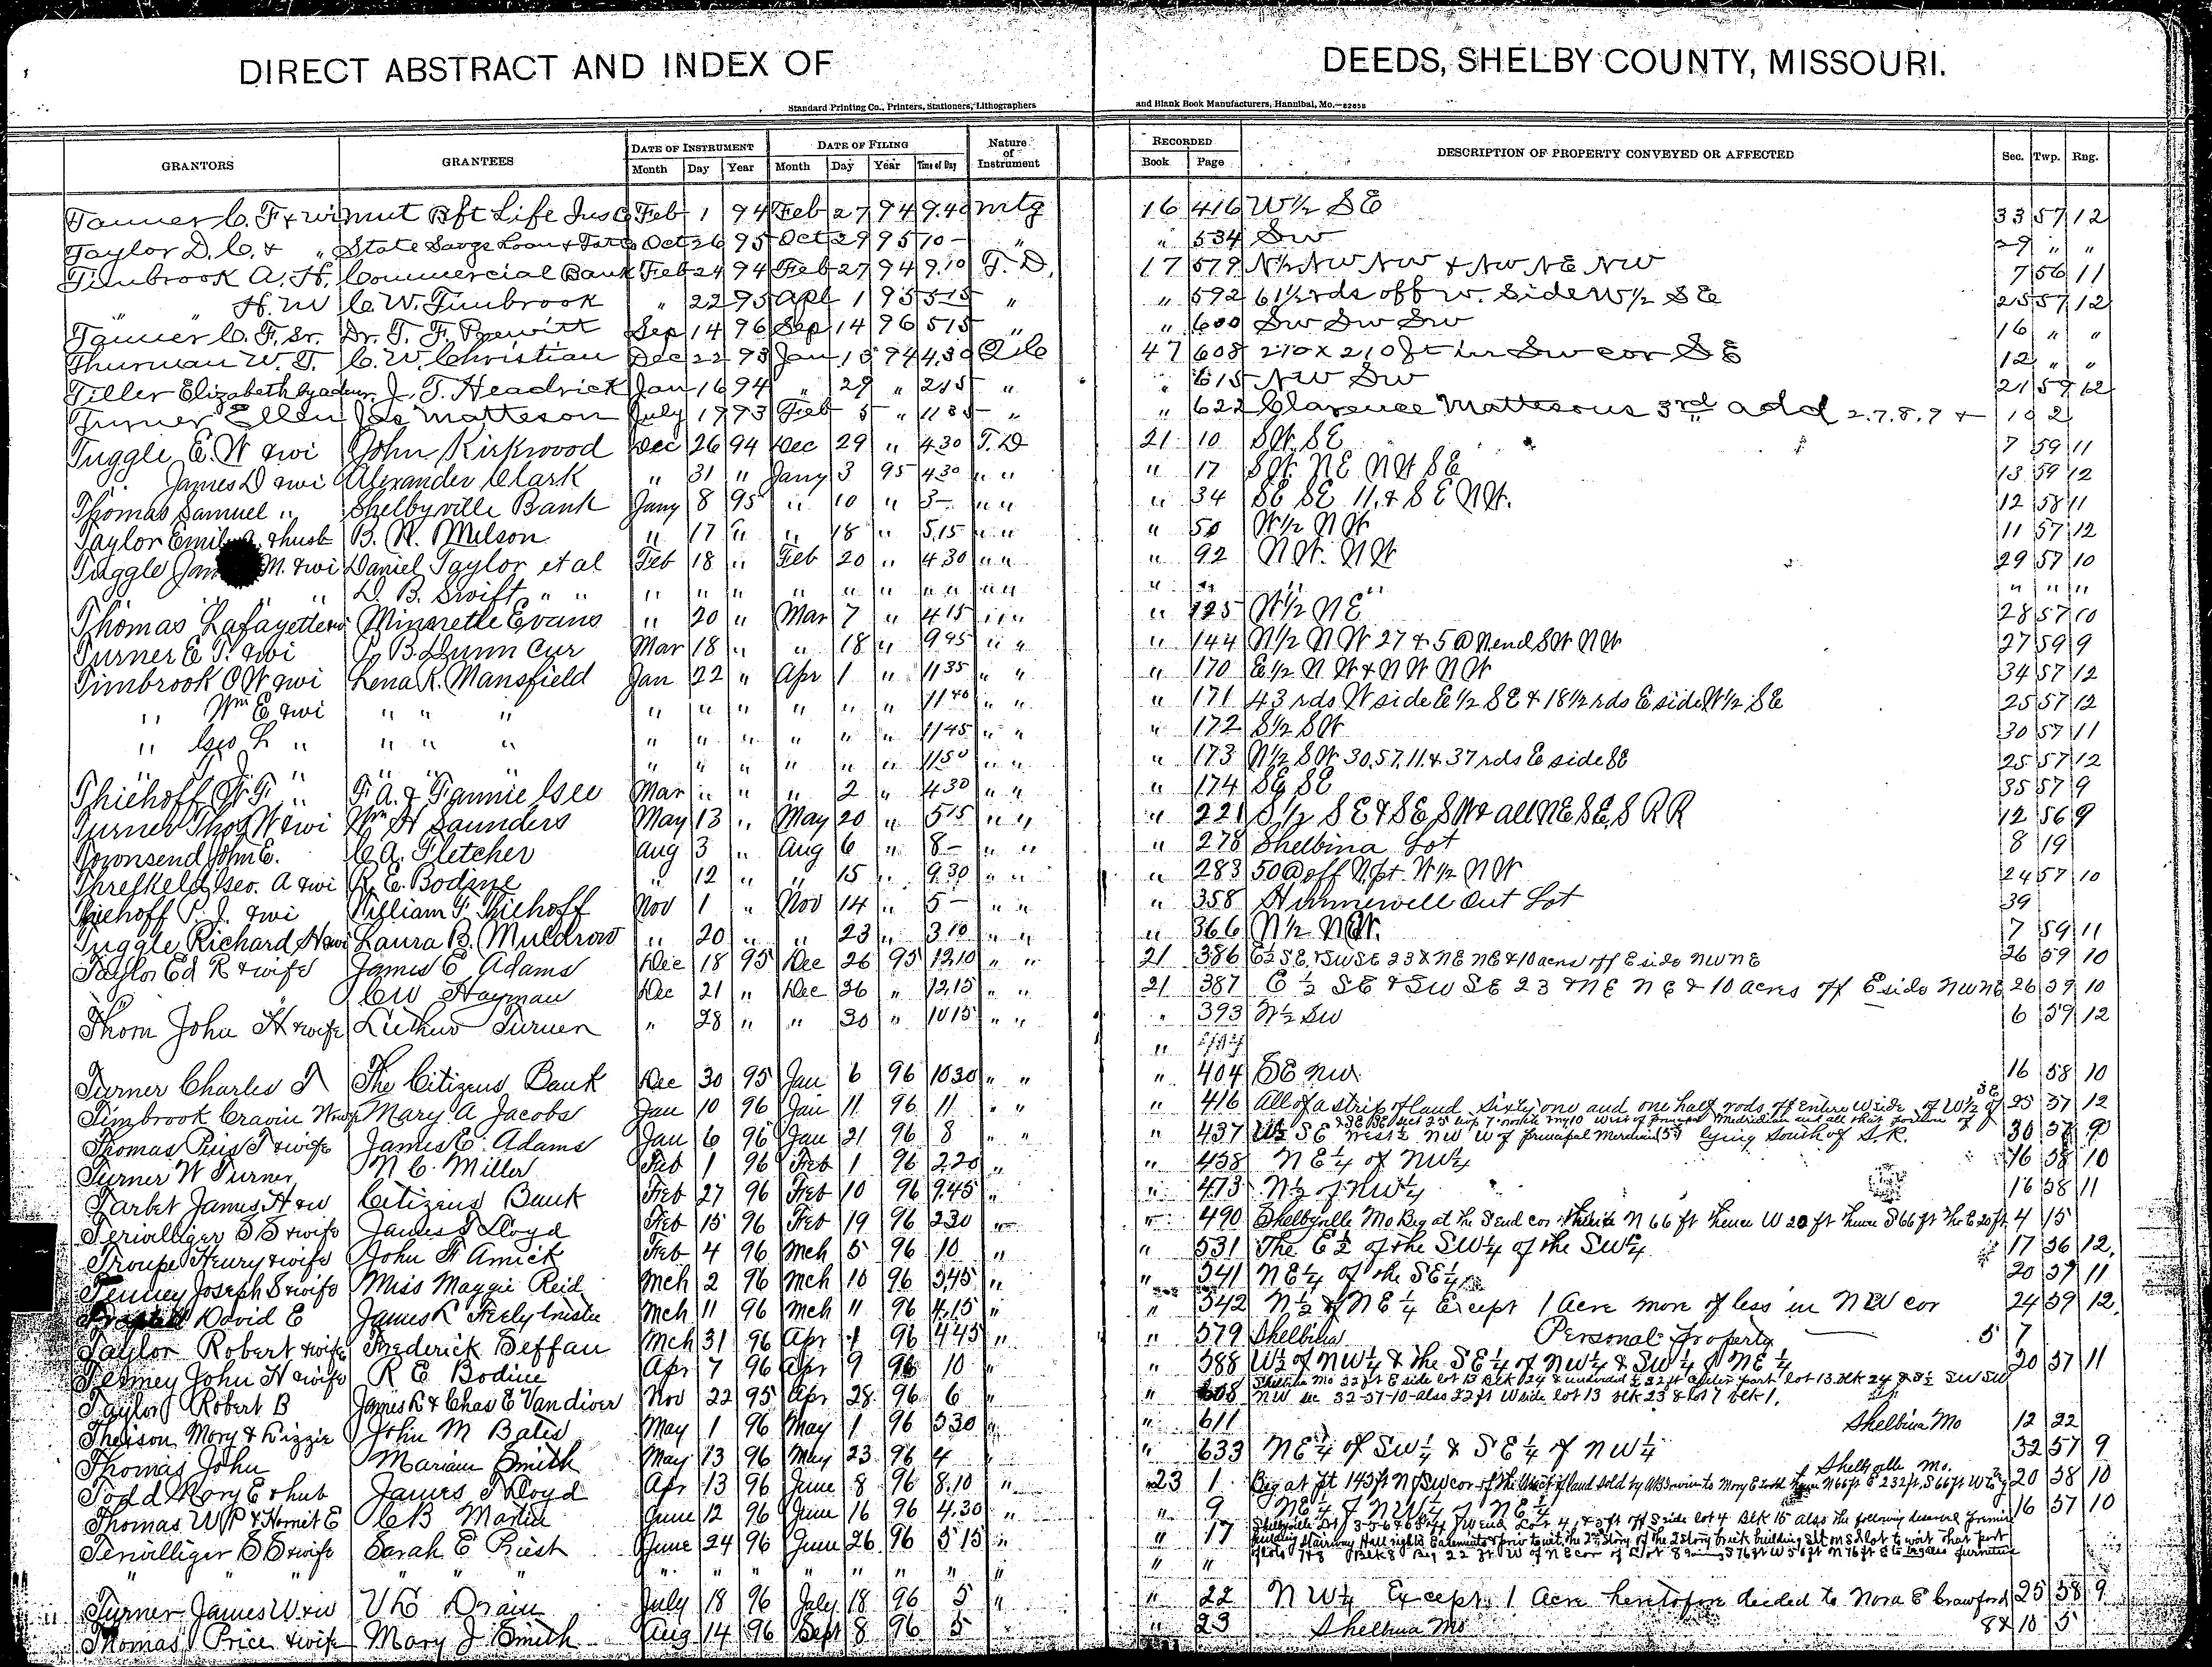 DIRECT ABSTRACT AND INDEX OF DEEDS, SHELBY COUNTY, MISSOURI.
Standard Printing Co., Printers, Stationers, Lithographers and Blank Book Manufacturers, Hannibal, Mo.—82858
GRANTORS GRANTEES DATE OF INSTRUMENT DATE OF FILING Nature of Instrument RECORDED DESCRIPTION OF PROPERTY CONVEYED OR AFFECTED Sec. Twp. Rng.
Month Day Year Month Day Year Time of Day Book Page
Tanner C. F & wi mut Bft Life Ins Co Feb 1 94 Feb 27 94 9.40 mtg 16 416 W½ SE 33 57 12
Taylor D. C. & " State Savgs Loan & Oct 26 95 Oct 29 95 10 - " " 534 SW 29 " "
Timbrook A. H. Commercial Bank Feb 24 94 Feb 27 94 9.10 T. D. 17 579 N½ NW NW & NW NE NW 7 56 11
" H. W C. W. Timbrook " 22 95 Apl 1 95 515 " " 592 61½ rds off W. Side W½ SE 25 57 12
Tanner C. F. Sr. Dr. T. F. Prewitt Sep 14 96 Sep 14 96 515 " " 600 SW SW SW 16 " "
Thurman W. T. C. W. Christian Dec 22 93 Jan 94 4.30 47 608 210 x 210 ft in SW cor SE 12 " "
Tiller Elizabeth by admr. J. T. Headrick Jan 16 94 " 29 " 215 " " 615 NW SW 21 59 12
Turner Ellen Matteson July 17 93 Feb 5 " 1135 " " 622 Clarence Mattesons 3rd add 2.7.8.9 & 10 2
Tuggle E. W & wi John Kirkwood Dec 26 94 Dec 29 " 430 T. D 21 10 SW. SE 7 59 11
" James D & wi Alexander Clark " 31 " Jany 3 95 430 " " " 17 SW. NE NW SE 13 59 12
Thomas Samuel " Shelbyville Bank Jany 8 95 " 10 " 3- " " " 34 SE SE 11, & SE NW. 12 58 11
Taylor Emily & husb B. R. Melson " 17 " " 18 " 5.15 " " " 50 W½ NW 11 57 12
Tuggle M. & wi Daniel Taylor et al Feb 18 " Feb 20 " 430 " " " 92 NW. NW 29 57 10
" " " D. B. Swift " " " " " " " " " " " " " " " " " "
Thomas Lafayette & wi Minnretle Evans " 20 " Mar 7 " 415 " " " 125 W½ NE 28 57 10
Turner E T. & wi B. Dunn Cur Mar 18 " " 18 " 945 " " " 144 N½ NW 27 & 5 @ N end SW NW 27 59 9
Timbrook O W & wi Lena R. Mansfield Jan 22 " Apr 1 " 1135 " " " 170 E½ NW & NW NW 34 57 12
" Wm E & wi " " " " " " " " " 1140 " " " 171 43 rds W side E½ SE & 18½ rds E side W½ SE 25 57 12
" Geo L " " " " " " " " " " 1145 " " " 172 S½ SW 30 57 11
" J. " " " " " " " " " " 1150 " " " 173 N½ SW 30, 57, 11 & 37 rds E side SE 25 57 12
Thiehoff " F. A. & Fannie Gee Mar " " " 2 " 430 " " " 174 SE SE 35 57 9
Turner Thos W & wi Wm H Saunders May 13 " May 20 " 515 " " " 221 S½ SE & SE SW & all NE SE, S RR 12 56 9
Townsend John E. C. A. Fletcher Aug 3 " Aug 6 " 8- " " " 278 Shelbina Lot 8 19
Threlkeld Geo. A & wi R. E. Bodine " 12 " " 15 " 930 " " " 283 50 @ off N. pt. W½ NW 24 57 10
Thiehoff P. J. & wi William F. Thiehoff Nov 1 " Nov 14 " 5- " " " 358 Hunnewell Out Lot 39
Tuggle Richard H & wi Laura B. Muldrow " 20 " " 23 " 310 " " " 366 N½ NW. 7 59 11
Taylor Ed R & wife James E Adams Dec 18 95 Dec 26 95 1210 " " 21 386 E½ SE. & SW SE 23 & NE NE & 10 acres off E side NW NE 26 59 10
CW Hayman Dec 21 " Dec 26 " 1215 " " 21 387 E½ SE & SW SE 23 & NE NE & 10 acres off E side NW NE 26 59 10
Thom John H & wife Luther Turner " 28 " " 30 " 1015 " " " 393 N½ SW 6 59 12
"
Turner Charles T The Citizens Bank Dec 30 95 Jan 6 96 1030 " " " 404 SE NW 16 58 10
Timbrook Cravin W & wife Mary A Jacobs Jan 10 96 Jan 11 96 11 " " " 416 All of a strip of land Sixty one and one half rods off Entire W side of W½ of SE 25 57 12
Thomas Pius T & wife James E. Adams Jan 6 96 Jan 21 96 8 " " " 437 W½ SE West½ NW W of principal Meridian lying South of S.R. 30 57 9
Turner W Turner N C. Miller Feb 1 96 Feb 1 96 220 " " 458 NE¼ of NW¼ 16 58 10
Tarbet James H & w Citizens Bank Feb 27 96 Feb 10 96 9.45 " " 473 N½ of NW¼ 16 58 11
Terwilliger S S & wife James T Lloyd Feb 15 96 Feb 19 96 230 " " 490 Shelbyville Mo Beg at the S end cor thence N 66 ft thence W 20 ft thence S 66 ft The E 20 ft 4 15
Troupe Henry & wife John H Amick Feb 4 96 Mch 5 96 10 " " 531 The E½ of the SW¼ of the SW¼ 17 56 12
Tenney Joseph S & wife Miss Maggie Reid Mch 2 96 Mch 10 96 3.45 " " 541 NE¼ of the SE¼ 20 57 11
David E James R Feely trustee Mch 11 96 Mch 11 96 4.15 " " 542 N½ of NE¼ Except 1 Acre more of less in NW cor 24 59 12
Taylor Robert & wife Frederick Beffan Mch 31 96 Apr 1 96 445 " " 579 Shelbina Personal Property 5 7
Tenney John H & wife R E Bodine Apr 7 96 Apr 9 96 10 " " 588 W½ of NW¼ & the SE¼ of NW¼ & SW¼ of NE¼ 20 57 11
Shelbina Mo 32 ft E side lot 13 Blk 24 & lot 13 Blk 24 SW SW
Taylor Robert B James R & Chas E Vandiver Nov 22 95 Apr 28 96 6 " " 608 NW sec 32-57-10 - also 22 ft W side lot 13 blk 23 & lot 7 blk 1.
Theison Mary & Lizzie John M Bates May 1 96 May 1 96 330 " " 611 Shelbina Mo 12 22
Thomas John Mariam Smith May 13 96 May 23 96 4 " " 633 NE¼ of SW¼ & SE¼ of NW¼ 32 57 9
Shelbyville Mo.
Todd Mary E & hub James T Lloyd Apr 13 96 June 8 96 8.10 " 23 1 Beg at pt 145 ft N of SW cor of the tract of land sold by to Mary E Todd N 66 ft E 232 ft, S 66 ft W 20 58 10
Thomas W P & Harriet E C B Martin June 12 96 June 16 96 4.30 " " 9 NE¼ of NW¼ of NE¼ 16 57 10
Terwilliger S S & wife Sarah E Priest June 24 96 June 26 96 515 " " 17 Shelbyville Lot 3-5-6 & W end Lot 4, & 3 ft off S side lot 4 Blk 15 also the following described
Stairway Hall rights Easements to wit the 2nd Story of the 2 Story brick building
" " " " " " " " " " " of lots 7 & 8 Blk 8 Beg 22 ft W of NE cor of lot 8 S 76 ft W 56 ft N 76 ft E to furniture
Turner James W & w V L Drain July 18 96 July 18 96 5 " " 22 NW¼ Except 1 Acre heretofore deeded to Nora E Crawford 25 58 9
Thomas Price & wife Mary J Smith Aug 14 96 Sept 8 96 5 " " 23 Shelbina Mo 8 & 10 5